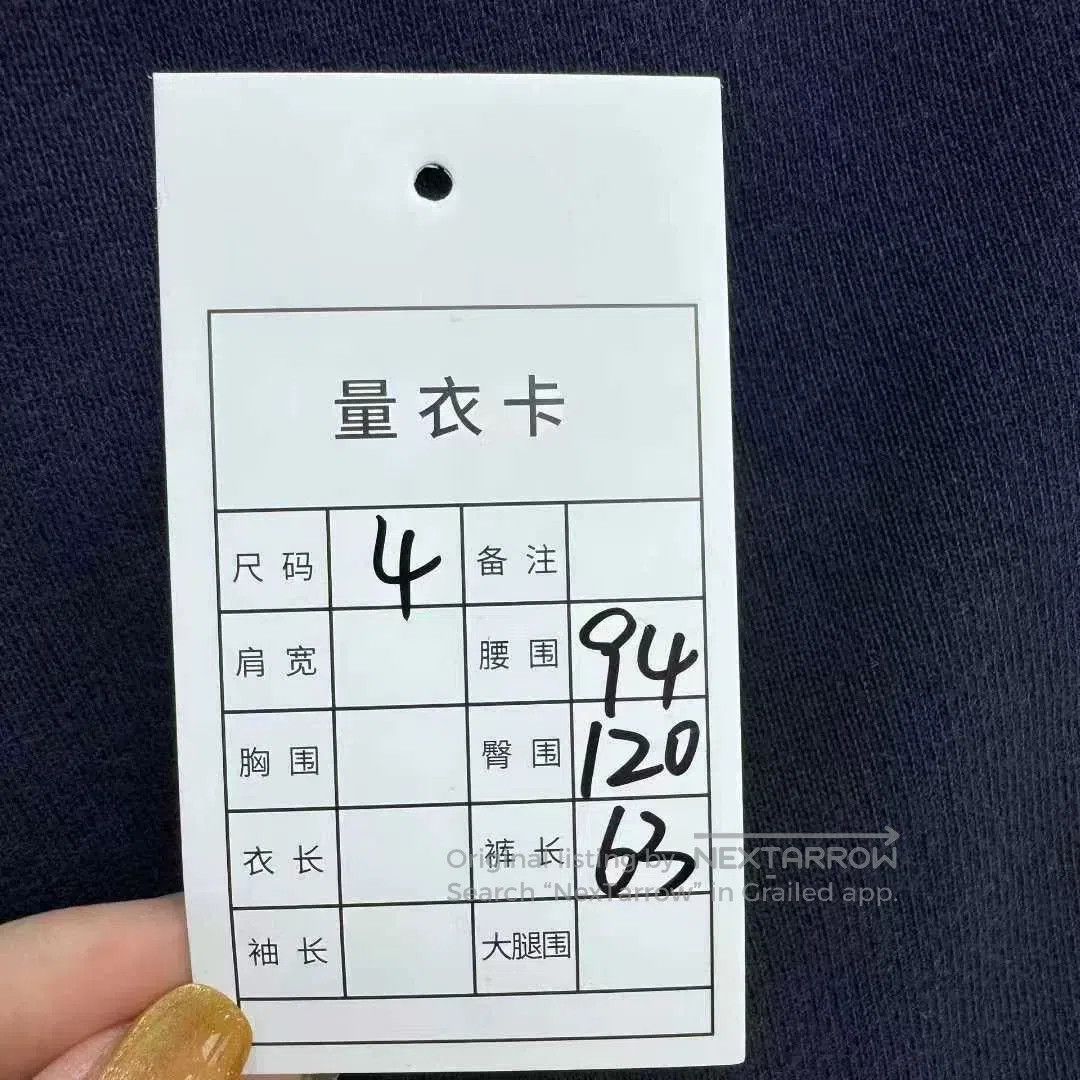 量衣卡
尺码 4 备注
肩宽 腰围 94
胸围 臀围 120
衣长 裤长 63
袖长 大腿围
Original listing by NEXTARROW
Search “NexTarrow” in Grailed app.